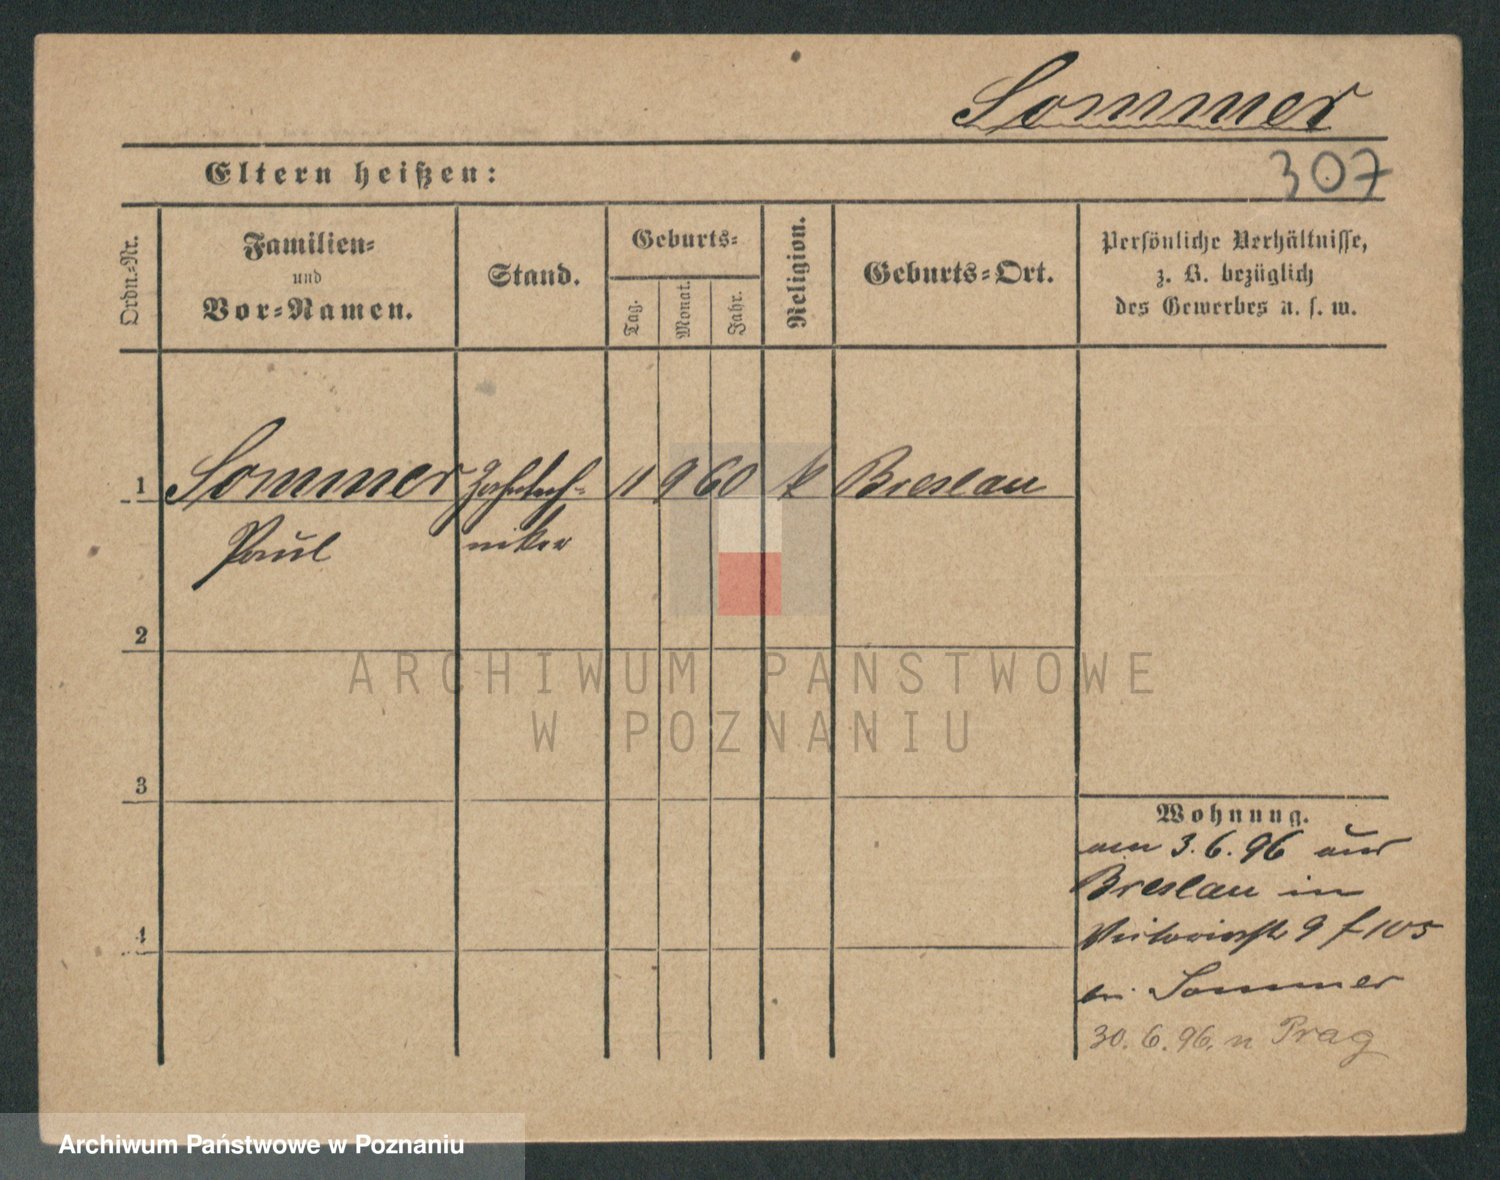 Sommer
Eltern heißen:
307
Ordn.-Nr.
Familien-
und
Vor-Namen.
Stand.
Geburts-
Tag.
Monat.
Jahr.
Religion.
Geburts-Ort.
Persönliche Verhältnisse,
z. B. bezüglich
des Gewerbes u. s. w.
1 Sommer Zahntech- 11 9 60 k Breslau
Paul niker
2
3
4
Wohnung.
am 3.6.96 aus
Breslau in
Victoriastr 9 f 105
bei Sommer
30.6.96. n Prag
ARCHIWUM PAŃSTWOWE
W POZNANIU
Archiwum Państwowe w Poznaniu